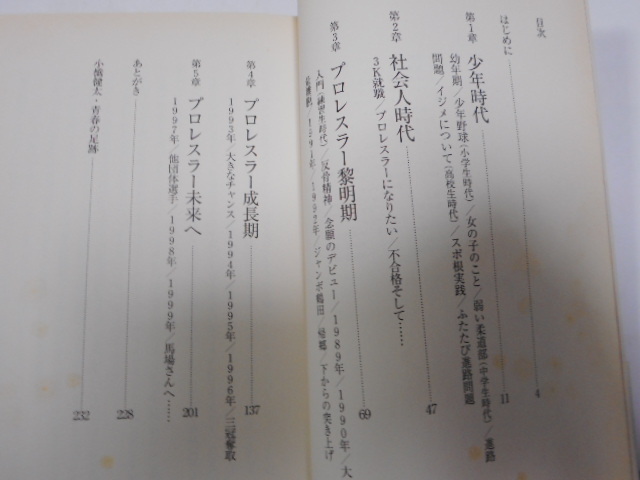 目次
はじめに 4
第1章 少年時代 11
幼年期／少年野球（小学生時代）／女の子のこと／弱い柔道部（中学生時代）／進路
問題／イジメについて（高校生時代）／スポ根実践／ふたたび進路問題
第2章 社会人時代 47
3K就職／プロレスラーになりたい／不合格そして……
第3章 プロレスラー黎明期 69
入門（練習生時代）／反骨精神／念願のデビュー／1989年／1990年／大
1991年／1992年／ジャンボ鶴田／帰郷／下からの突き上げ
第4章 プロレスラー成長期 137
1993年／大きなチャンス／1994年／1995年／1996年／三冠奪取
第5章 プロレスラー未来へ 201
1997年／他団体選手／1998年／1999年／馬場さんへ……
あとがき 228
小橋健太・青春の足跡 232